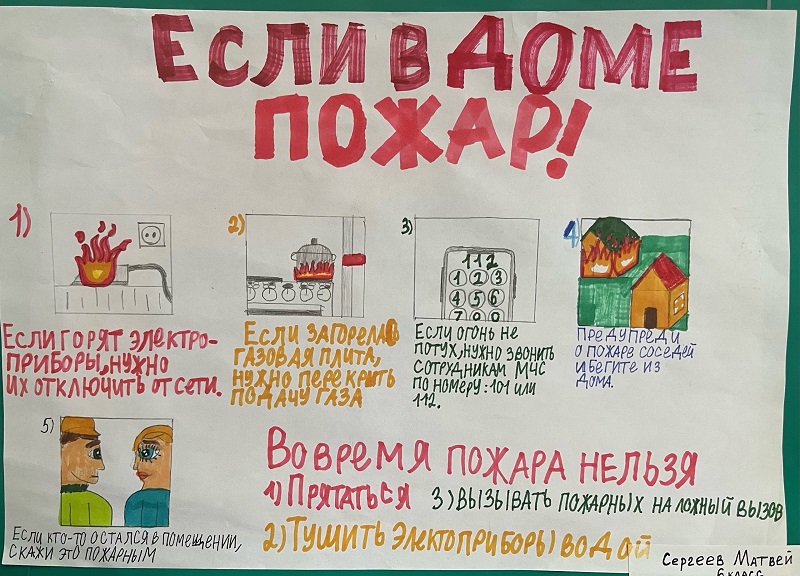 ЕСЛИ В ДОМЕ
ПОЖАР!
1)
ЕСЛИ ГОРЯТ ЭЛЕКТРО-
ПРИБОРЫ, НУЖНО
ИХ ОТКЛЮЧИТЬ ОТ СЕТИ.
2)
ЕСЛИ ЗАГОРЕЛАСЬ
ГАЗОВАЯ ПЛИТА,
НУЖНО ПЕРЕКРЫТЬ
ПОДАЧУ ГАЗА
3)
112
1 2 3
4 5 6
7 8 9
ЕСЛИ ОГОНЬ НЕ
ПОТУХ, НУЖНО ЗВОНИТЬ
СОТРУДНИКАМ МЧС
ПО НОМЕРУ: 101 ИЛИ
112.
4)
ПРЕДУПРЕДИ
О ПОЖАРЕ СОСЕДЕЙ
И БЕГИТЕ ИЗ
ДОМА.
5)
ЕСЛИ КТО-ТО ОСТАЛСЯ В ПОМЕЩЕНИИ,
СКАЖИ ЭТО ПОЖАРНЫМ
ВО ВРЕМЯ ПОЖАРА НЕЛЬЗЯ
1) ПРЯТАТЬСЯ
3) ВЫЗЫВАТЬ ПОЖАРНЫХ НА ЛОЖНЫЙ ВЫЗОВ
2) ТУШИТЬ ЭЛЕКТОПРИБОРЫ ВОДОЙ
Сергеев Матвей
6 КЛАСС